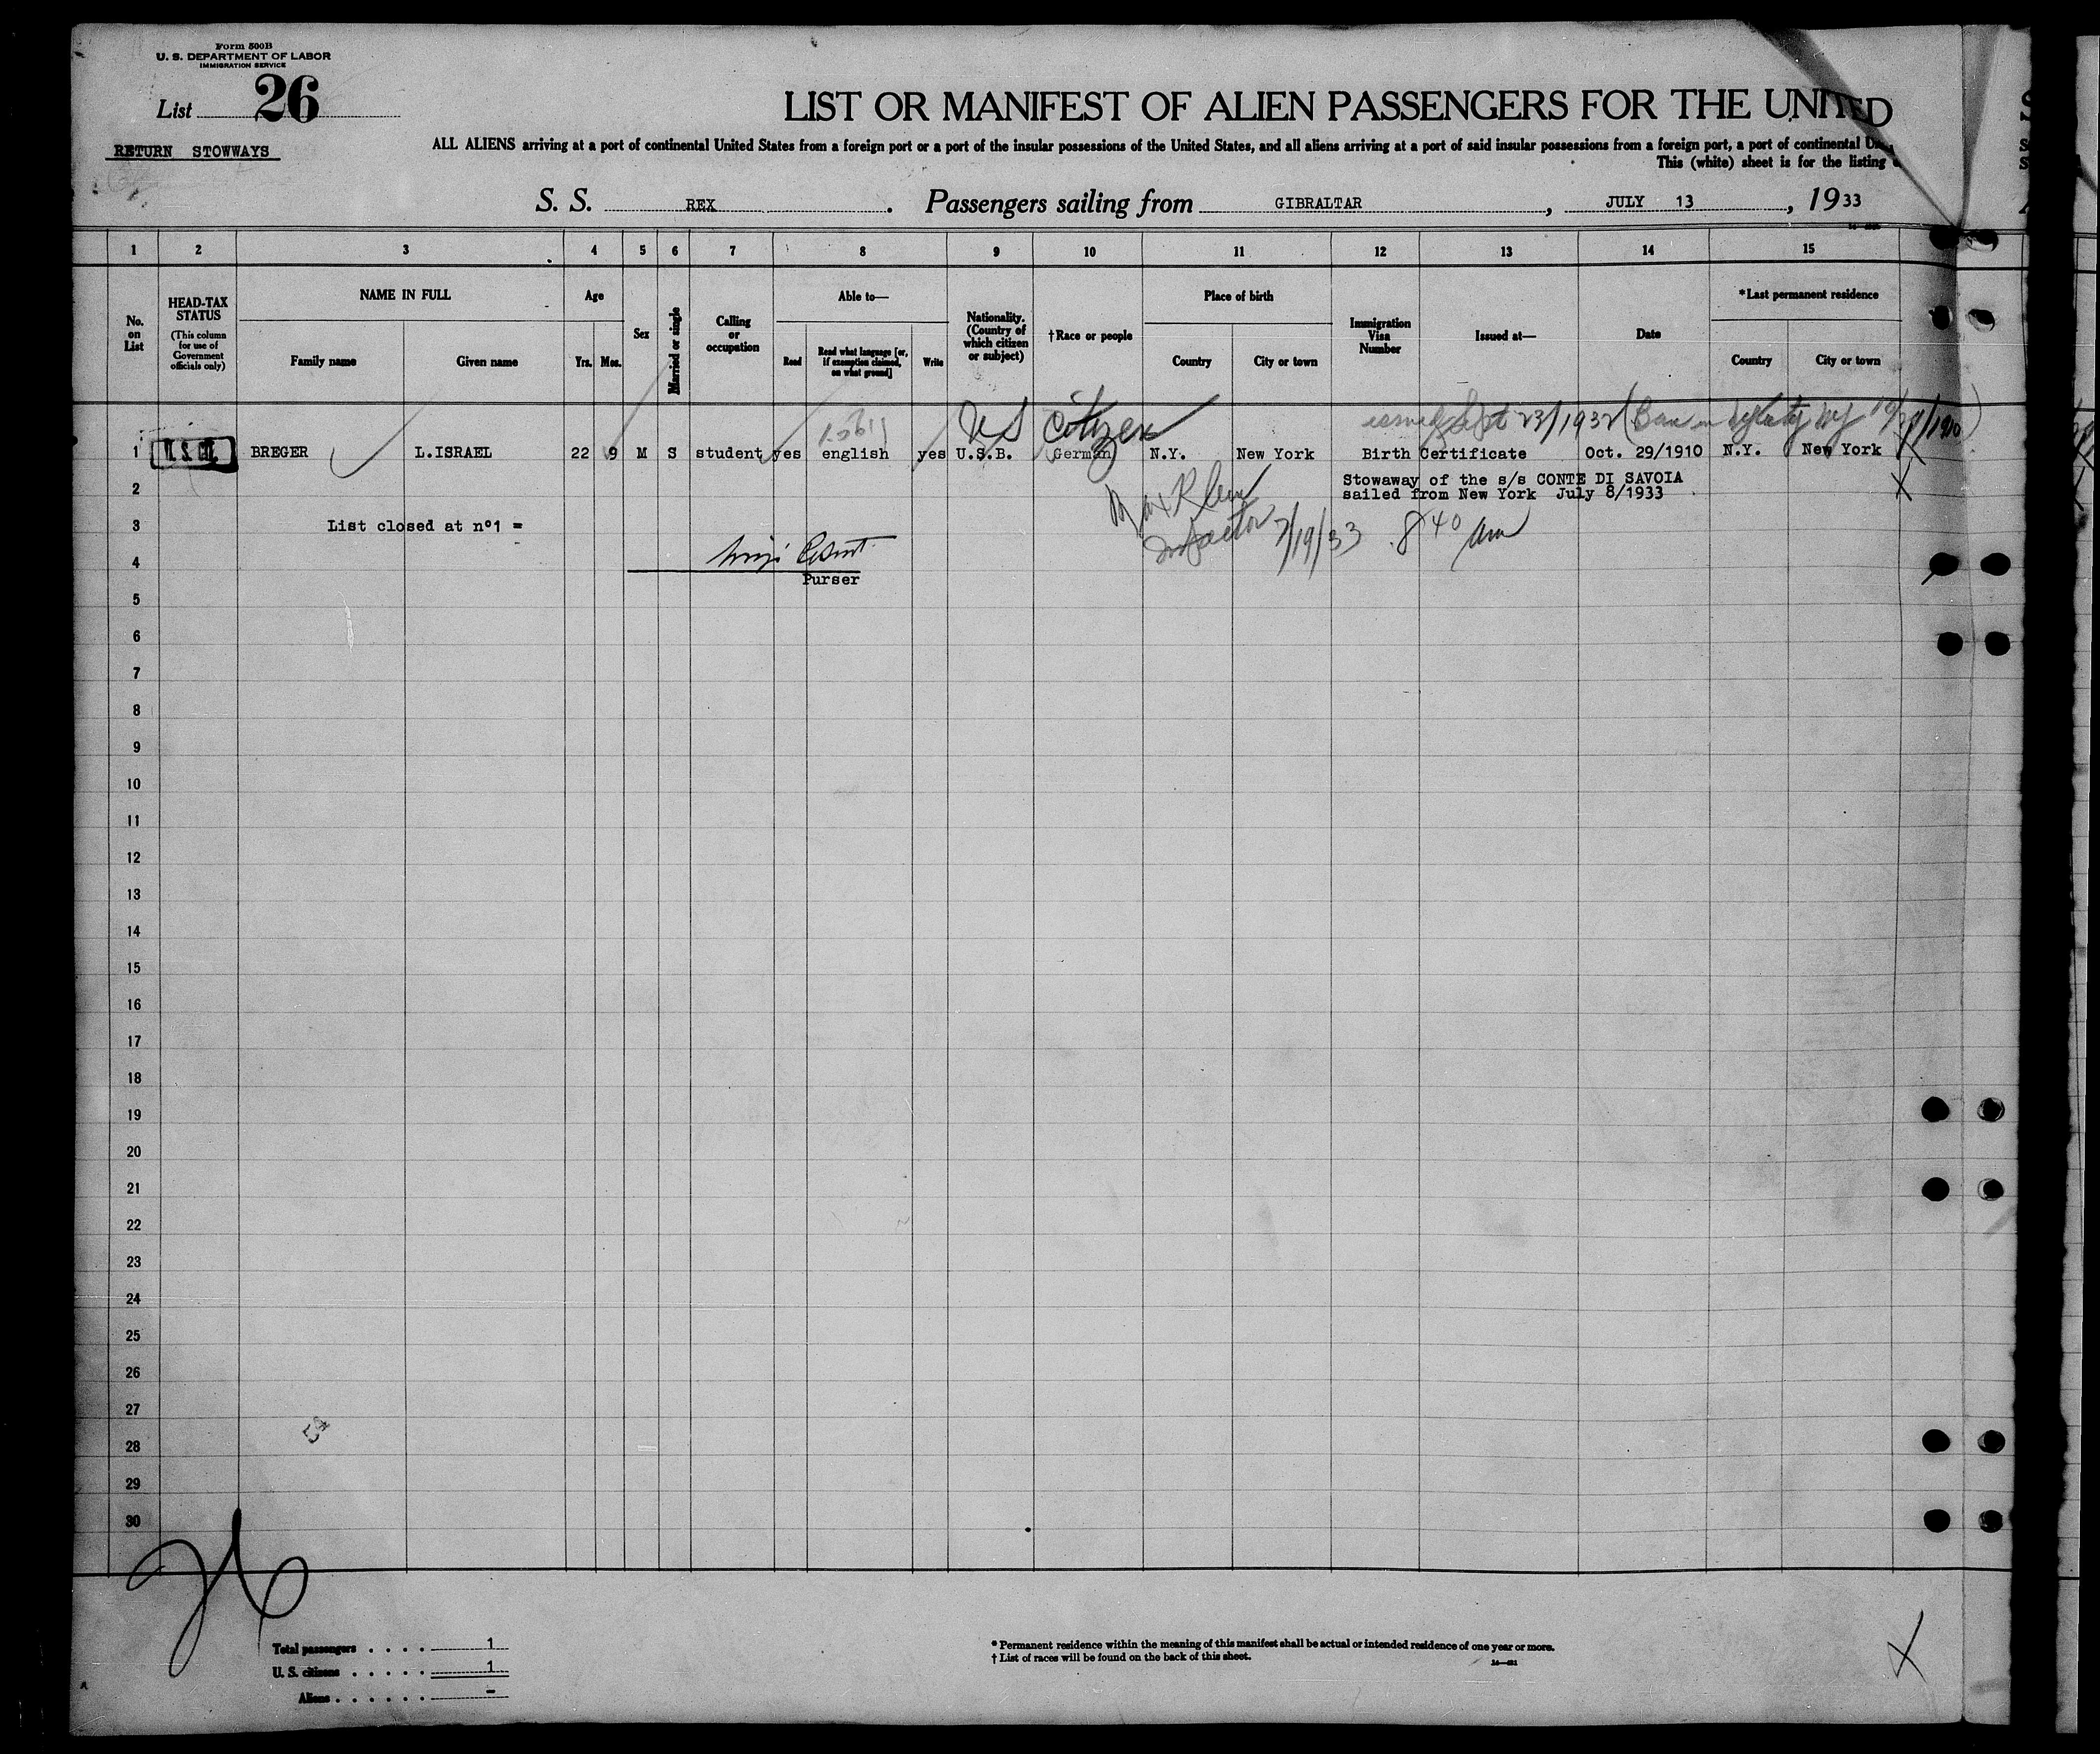 Form 500B
U. S. DEPARTMENT OF LABOR
IMMIGRATION SERVICE
List 26
RETURN STOWWAYS
LIST OR MANIFEST OF ALIEN PASSENGERS FOR THE UNITED
ALL ALIENS arriving at a port of continental United States from a foreign port or a port of the insular possessions of the United States, and all aliens arriving at a port of said insular possessions from a foreign port, a port of continental
This (white) sheet is for the listing
S. S. REX. Passengers sailing from GIBRALTAR, JULY 13, 1933
1 2 3 4 5 6 7 8 9 10 11 12 13 14 15
No. on List
HEAD-TAX STATUS
(This column for use of Government officials only)
NAME IN FULL
Family name Given name
Age
Yrs. Mos.
Sex
Married or single
Calling or occupation
Able to—
Read Read what language [or, if exemption claimed, on what ground] Write
Nationality. (Country of which citizen or subject)
†Race or people
Place of birth
Country City or town
Immigration Visa Number
Issued at—
Date
*Last permanent residence
Country City or town
US Citizen
issued Sept 23/1932 (Born in
1 BREGER L.ISRAEL 22 9 M S student yes english yes U.S.B. German N.Y. New York Birth Certificate Oct. 29/1910 N.Y. New York
2 Stowaway of the s/s CONTE DI SAVOIA
sailed from New York July 8/1933
3 List closed at nº1 =
7/19/33 8 40 am
4
Purser
5
6
7
8
9
10
11
12
13
14
15
16
17
18
19
20
21
22
23
24
25
26
27
28
29
30
26
Total passengers . . . . 1
U. S. citizens . . . . . 1
Aliens . . . . . . –
* Permanent residence within the meaning of this manifest shall be actual or intended residence of one year or more.
† List of races will be found on the back of this sheet.